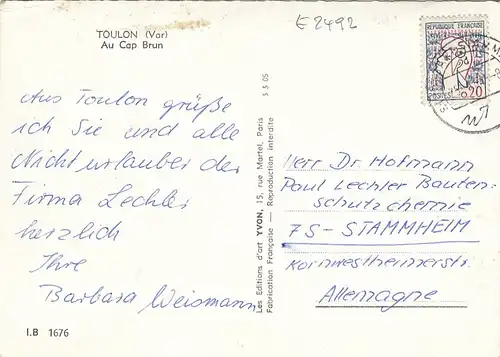 E 2492
TOULON (Var)
Au Cap Brun
REPUBLIQUE FRANÇAISE
0.20
POSTES
Aus Toulon grüße
ich Sie und alle
Nicht urlauber der
Firma Lechler
herzlich
Ihre
Barbara Weismann
I.B 1676
5 5 05
Les Editions d'art YVON, 15, rue Martel, Paris
Fabrication Française — Reproduction interdite
Herr Dr. Hofmann
Paul Lechler Bauten-
schutz chemie
7S- STAMMHEIM
Kornwestheimerstr.
Allemagne